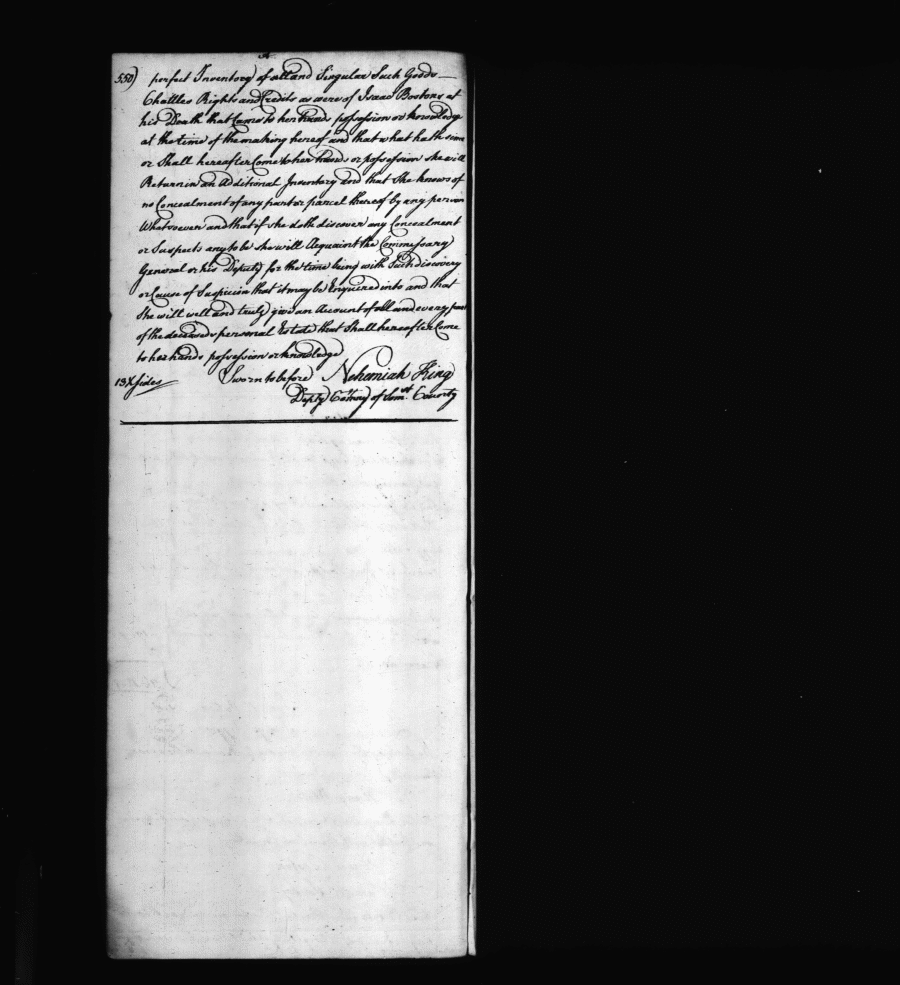 550) perfect Inventory of all and Singular Such Goods
Chattles Rights and Credits as were of Isaac Bostons at
his Death that Came to her hands possession or knowledge
at the time of the making hereof and that what hath since
or Shall hereafter Come to her hands or possession she will
Return in an Additional Inventory and that She knows of
no Concealment of any part or parcel thereof by any person
Whatsoever and that if she doth discover any Concealment
or Suspects any to be she will Acquaint the Commissary
General or his Deputy for the time being with Such discovery
or Cause of Suspicion that it may be Enquired into and that
She will well and truly give an Account of all and every part
of the deceaseds personal Estate that Shall hereafter Come
to her hands possession or knowledge
13X sides Sworn to before Nehemiah King
Depty Comry of Somst County